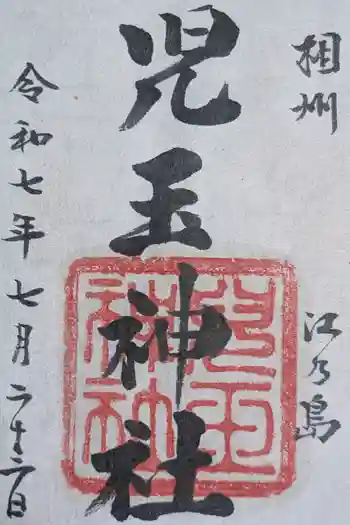 相州
江乃島
児玉神社
令和七年七月二十三日
兒玉
神社